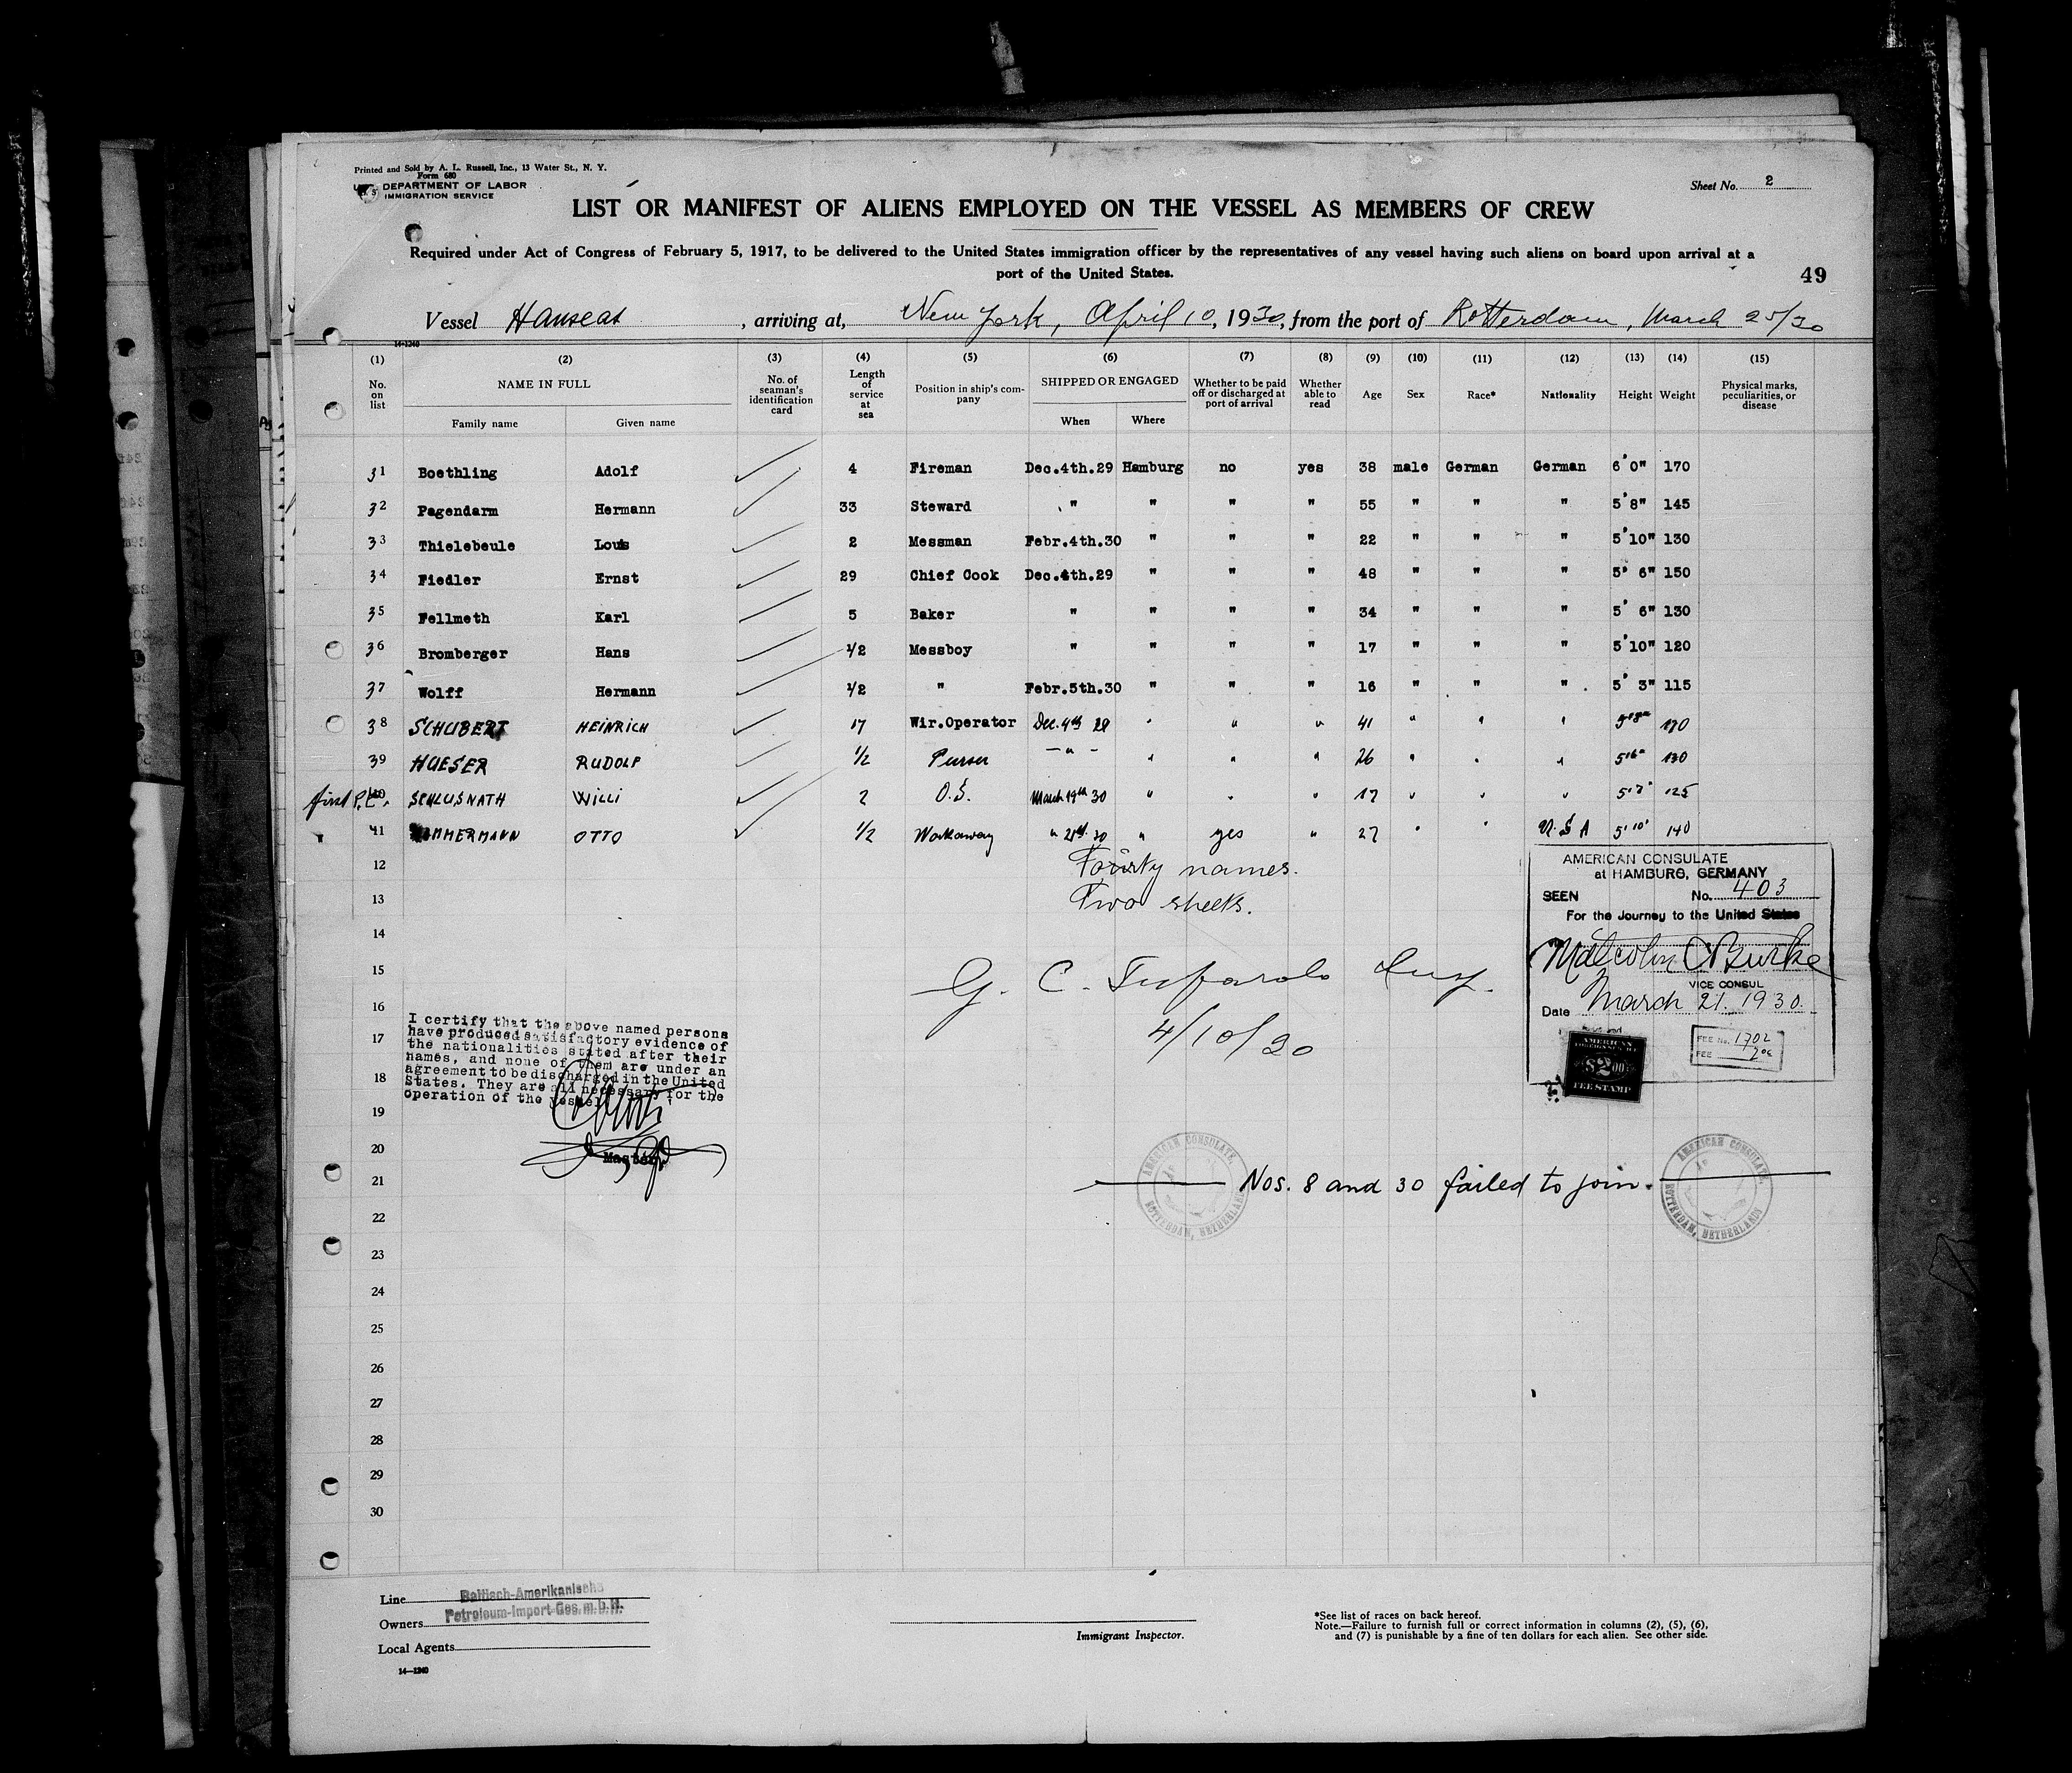 Printed and Sold by A. L. Russell, Inc., 13 Water St., N. Y.
Form 680
U. S. DEPARTMENT OF LABOR
IMMIGRATION SERVICE
Sheet No. 2
LIST OR MANIFEST OF ALIENS EMPLOYED ON THE VESSEL AS MEMBERS OF CREW
Required under Act of Congress of February 5, 1917, to be delivered to the United States immigration officer by the representatives of any vessel having such aliens on board upon arrival at a
port of the United States.
49
Vessel Hanseat, arriving at, New York, April 10, 1930, from the port of Rotterdam, March 25/30
14-1240
(1) (2) (3) (4) (5) (6) (7) (8) (9) (10) (11) (12) (13) (14) (15)
No. on list NAME IN FULL Family name Given name No. of seaman's identification card Length of service at sea Position in ship's company SHIPPED OR ENGAGED When Where Whether to be paid off or discharged at port of arrival Whether able to read Age Sex Race* Nationality Height Weight Physical marks, peculiarities, or disease
31 Boethling Adolf 4 Fireman Dec.4th.29 Hamburg no yes 38 male German German 6'0" 170
32 Pagendarm Hermann 33 Steward " " " " 55 " " " 5'8" 145
33 Thielebeule Louis 2 Messman Febr.4th.30 " " " 22 " " " 5'10" 130
34 Fiedler Ernst 29 Chief Cook Dec.4th.29 " " " 48 " " " 5' 6" 150
35 Fellmeth Karl 5 Baker " " " " 34 " " " 5' 6" 130
36 Bromberger Hans 1/2 Messboy " " " " 17 " " " 5'10" 120
37 Wolff Hermann 1/2 " Febr.5th.30 " " " 16 " " " 5' 3" 115
38 SCHUBERT HEINRICH 17 Wir.Operator Dec. 4th 29 " " " 41 " " " 5'8" 170
39 HUESER RUDOLF 1/2 Purser — " — " " " 26 " " " 5'6" 130
first 40 SCHLUSNATH WILLI 2 O.S. March 19th 30 " " " 17 " " " 5'7" 125
41 OTTO 1/2 Workaway " 21st 30 " yes " 27 " " U.S A 5'10" 140
12 Fourty names.
13 Two sheets.
14
15 G. C. Insp.
16 4/10/30
AMERICAN CONSULATE
at HAMBURG, GERMANY
SEEN No. 403
For the Journey to the United States
Malcolm C Burke
VICE CONSUL
Date March 21. 1930.
FEE No. 1702
FEE
AMERICAN
$2.00
FEE STAMP
I certify that the above named persons
have produced satisfactory evidence of
the nationalities stated after their
names, and none of them are under an
agreement to be discharged in the United
States. They are all necessary for the
operation of the vessel.
Master.
17
18
19
20
21
AMERICAN CONSULATE. ROTTERDAM, NETHERLANDS
Nos. 8 and 30 failed to join.
AMERICAN CONSULATE. ROTTERDAM, NETHERLANDS
22
23
24
25
26
27
28
29
30
Line Baltisch-Amerikanische
Owners Petroleum-Import-Ges.m.b.H.
Local Agents
14—1240
Immigrant Inspector.
*See list of races on back hereof.
Note.—Failure to furnish full or correct information in columns (2), (5), (6),
and (7) is punishable by a fine of ten dollars for each alien. See other side.